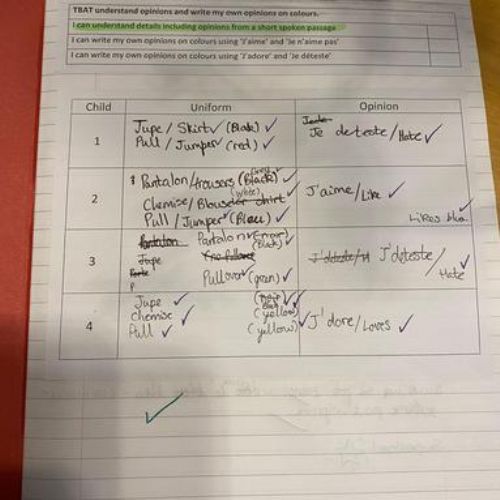 TBAT understand opinions and write my own opinions on colours.
I can understand details including opinions from a short spoken passage
I can write my own opinions on colours using 'J'aime' and 'Je n'aime pas'
I can write my own opinions on colours using 'J'adore' and 'Je déteste'
Child Uniform Opinion
1
Jupe / Skirt (Black)
Pull / Jumper (red)
Je deteste / Hate
2
Pantalon/trousers (Black)
Chemise/Blouse (white)
Pull / Jumper (Bleu)
J'aime / Like
Likes blue
3
Pantalon Pantalon (Black)
Jupe
Pullover (green)
J'déteste / Hate
4
Jupe
Chemise (yellow)
Pull (yellow)
J'dore / Loves